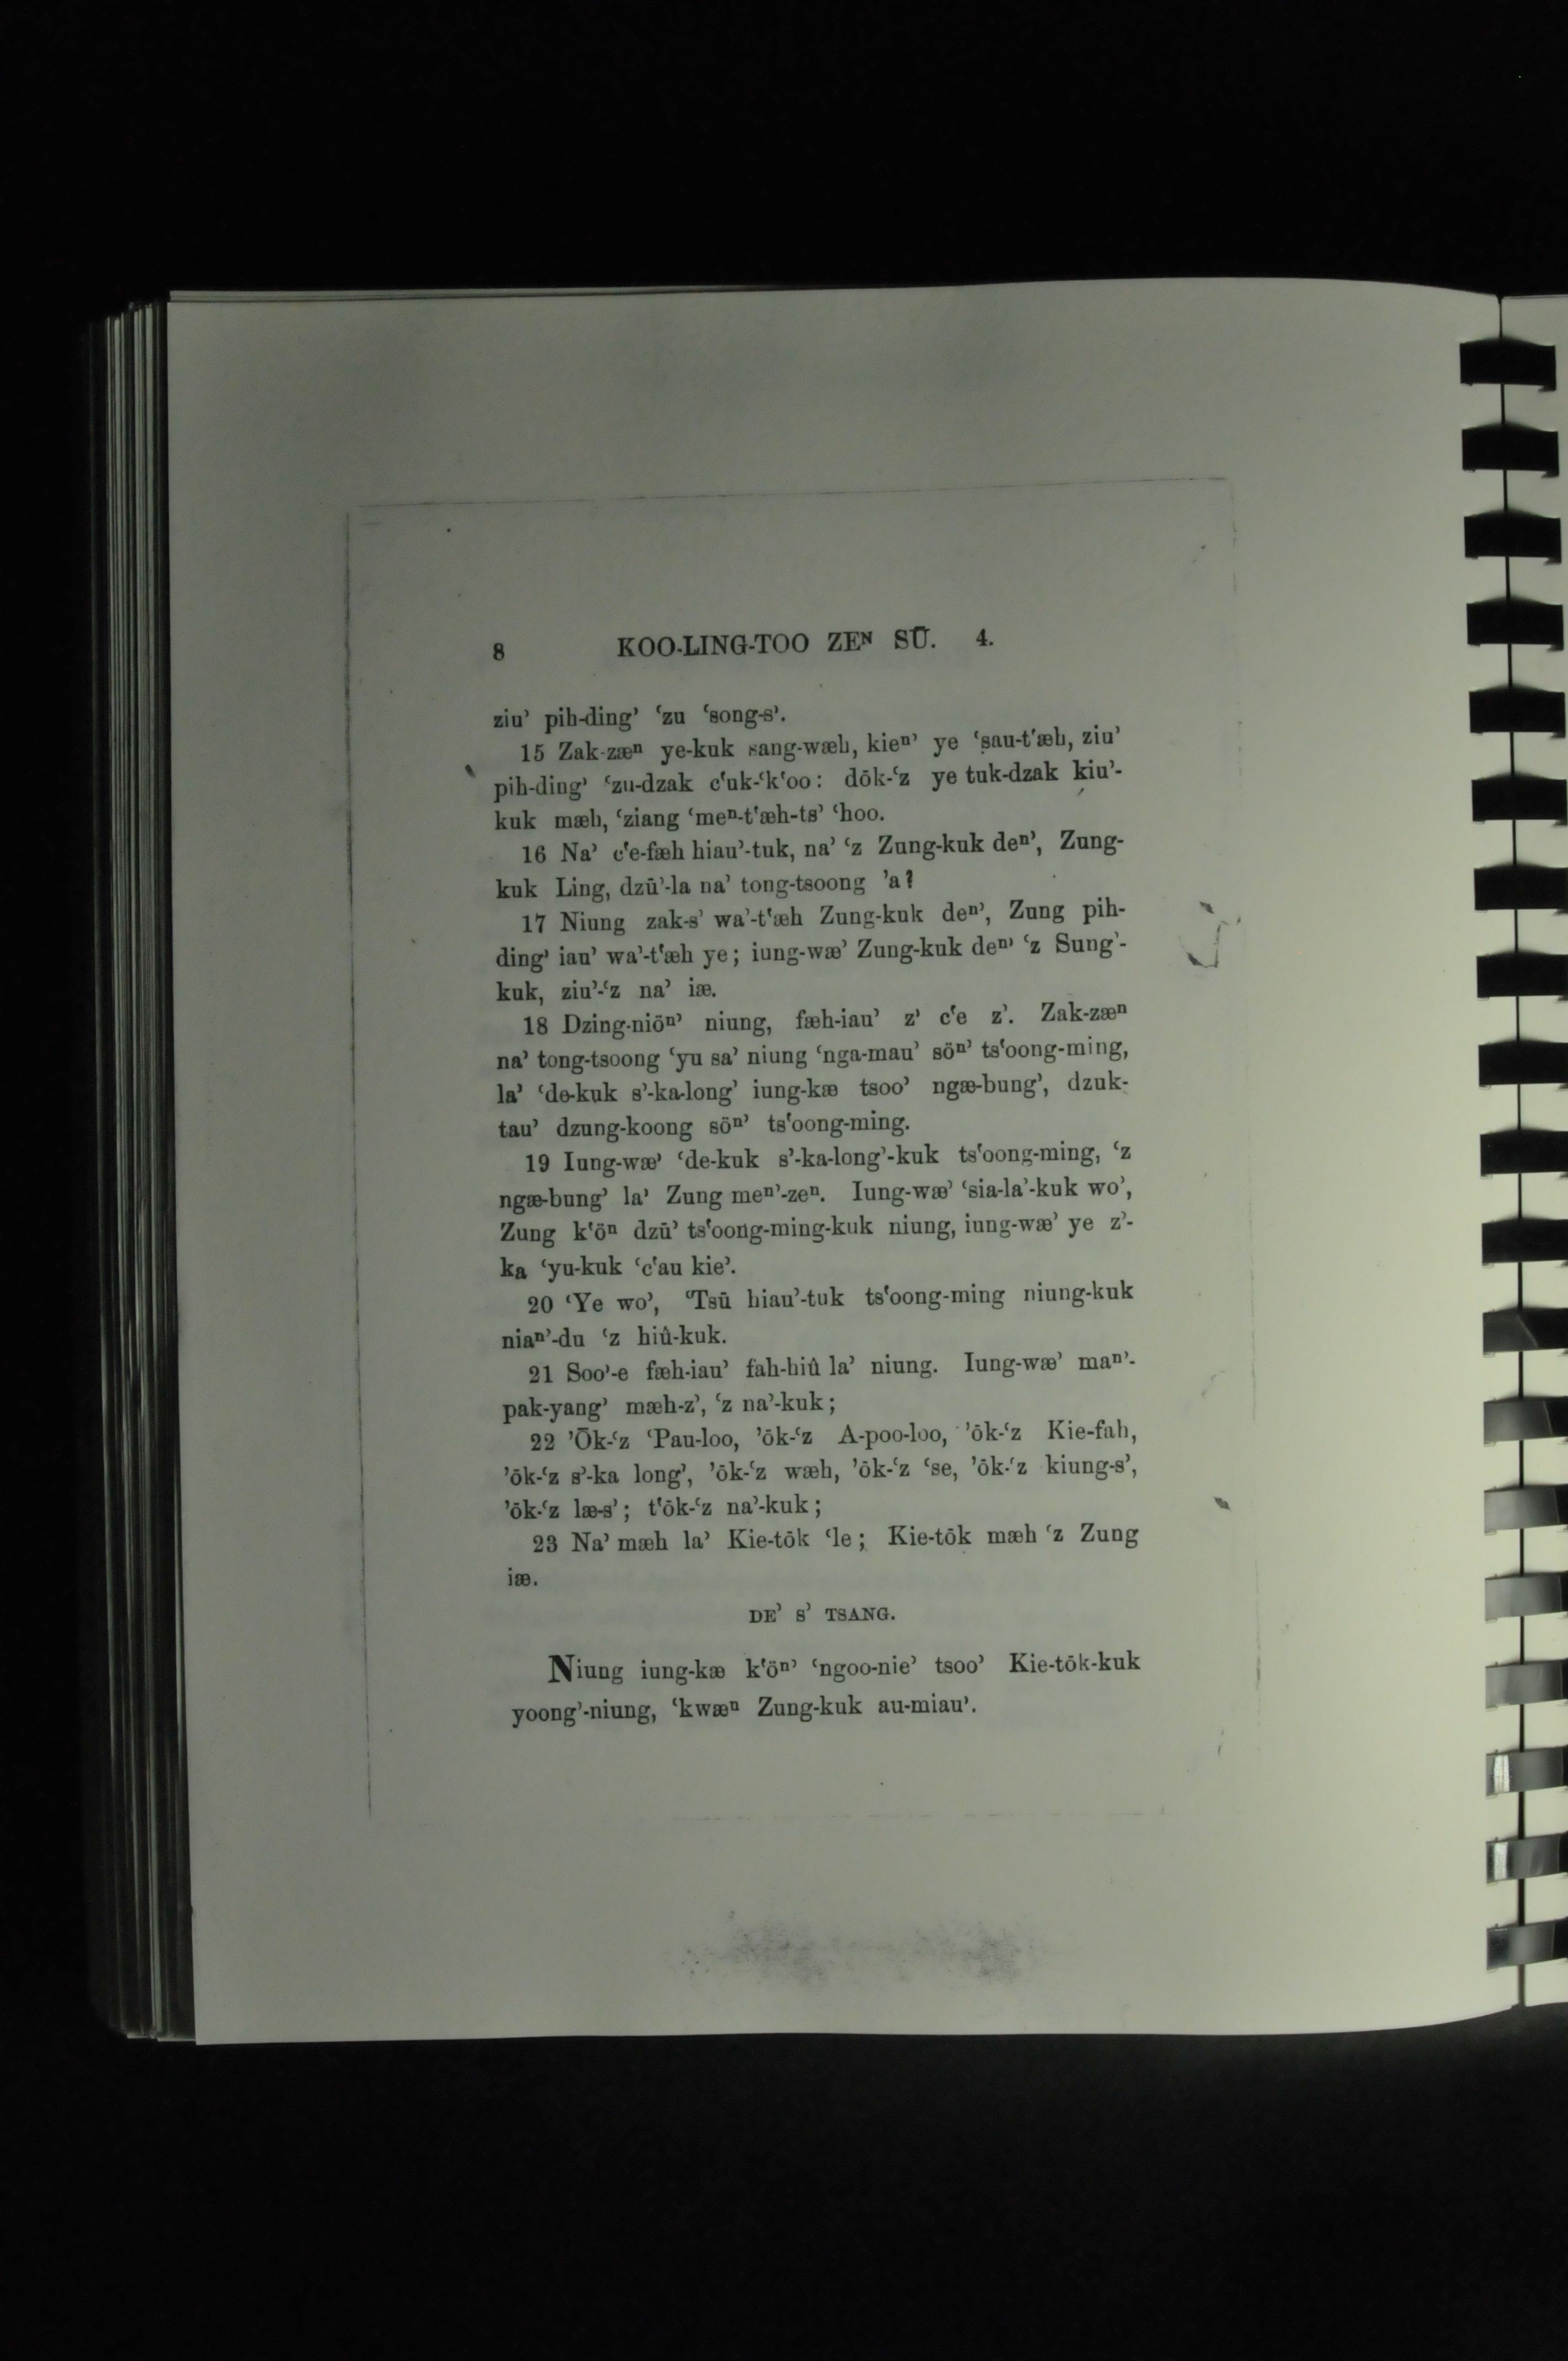 8 KOO-LING-TOO ZEᴺ SŪ. 4.
ziu’ pih-ding’ ‘zu ‘song-s’.
15 Zak-zæⁿ ye-kuk sang-wæh, kieⁿ’ ye ‘sau-t‘æh, ziu’
pih-ding’ ‘zu-dzak c‘uk-‘k‘oo: dōk-‘z ye tuk-dzak kiu’-
kuk mæh, ‘ziang ‘meⁿ-t‘æh-ts’ ‘hoo.
16 Na’ c‘e-fæh hiau’-tuk, na’ ‘z Zung-kuk deⁿ’, Zung-
kuk Ling, dzū’-la na’ tong-tsoong ’a?
17 Niung zak-s’ wa’-t‘æh Zung-kuk deⁿ’, Zung pih-
ding’ iau’ wa’-t‘æh ye; iung-wæ’ Zung-kuk deⁿ’ ‘z Sung’-
kuk, ziu’-‘z na’ iæ.
18 Dzing-niöⁿ’ niung, fæh-iau’ z’ c‘e z’. Zak-zæⁿ
na’ tong-tsoong ‘yu sa’ niung ‘nga-mau’ söⁿ’ ts‘oong-ming,
la’ ‘de-kuk s’-ka-long’ iung-kæ tsoo’ ngæ-bung’, dzuk-
tau’ dzung-koong söⁿ’ ts‘oong-ming.
19 Iung-wæ’ ‘de-kuk s’-ka-long’-kuk ts‘oong-ming, ‘z
ngæ-bung’ la’ Zung meⁿ’-zeⁿ. Iung-wæ’ ‘sia-la’-kuk wo’,
Zung k‘öⁿ dzū’ ts‘oong-ming-kuk niung, iung-wæ’ ye z’-
ka ‘yu-kuk ‘c‘au kie’.
20 ‘Ye wo’, ‘Tsū hiau’-tuk ts‘oong-ming niung-kuk
niaⁿ’-du ‘z hiû-kuk.
21 Soo’-e fæh-iau’ fah-hiû la’ niung. Iung-wæ’ maⁿ’-
pak-yang’ mæh-z’, ‘z na’-kuk;
22 ’Ōk-‘z ‘Pau-loo, ’ōk-‘z A-poo-loo, ’ōk-‘z Kie-fah,
’ōk-‘z s’-ka long’, ’ōk-‘z wæh, ’ōk-‘z ‘se, ’ōk-‘z kiung-s’,
’ōk-‘z læ-s’; t‘ōk-‘z na’-kuk;
23 Na’ mæh la’ Kie-tōk ‘le; Kie-tōk mæh ‘z Zung
iæ.
DE’ S’ TSANG.
Niung iung-kæ k‘öⁿ’ ‘ngoo-nie’ tsoo’ Kie-tōk-kuk
yoong’-niung, ‘kwæⁿ Zung-kuk au-miau’.